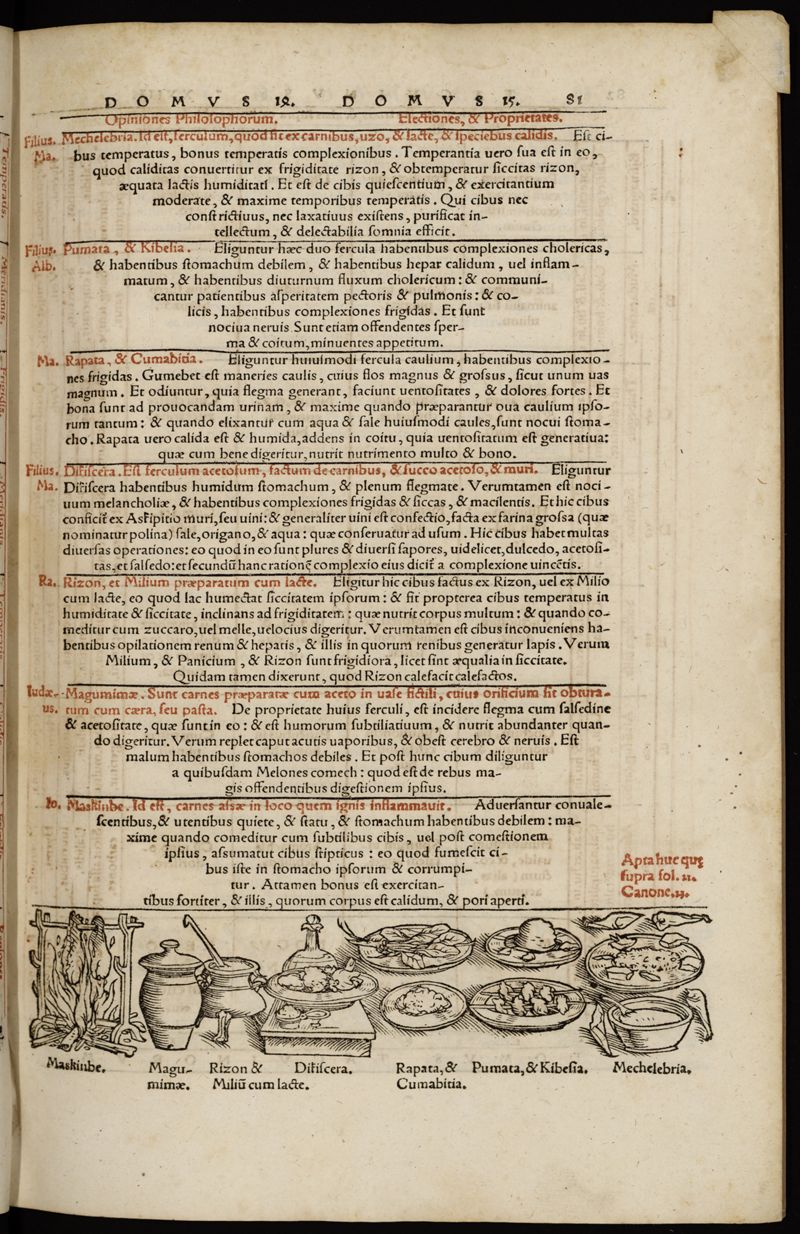 DOMVS 14. DOMVS 15. 81
Opiniones Philosophorum. Electiones, & Proprietates.
Filius. Mechelebria. Id est, ferculum, quod fit ex carnibus, uzo, & lacte, & speciebus calidis. Est ci-
Ma. bus temperatus, bonus temperatis complexionibus. Temperantia uero sua est in eo,
quod caliditas conuertitur ex frigiditate rizon, & obtemperatur siccitas rizon,
æquata lactis humiditati. Et est de cibis quiescentium, & exercitantium
moderate, & maxime temporibus temperatis. Qui cibus nec
constrictiuus, nec laxatiuus existens, purificat in-
tellectum, & delectabilia somnia efficit.
Filius. Pumata, & Kibesia. Eliguntur hæc duo fercula habentibus complexiones cholericas,
Alb. & habentibus stomachum debilem, & habentibus hepar calidum, uel inflam-
matum, & habentibus diuturnum fluxum cholericum: & communi-
cantur patientibus asperitatem pectoris & pulmonis: & co-
licis, habentibus complexiones frigidas. Et sunt
nociua neruis Sunt etiam offendentes sper-
ma & coitum, minuentes appetitum.
Ma. Rapata, & Cumabitia. Eliguntur huiusmodi fercula caulium, habentibus complexio-
nes frigidas. Gumebet est maneries caulis, cuius flos magnus & grossus, sicut unum uas
magnum. Et odiuntur, quia flegma generant, faciunt uentositates, & dolores fortes. Et
bona sunt ad prouocandam urinam, & maxime quando præparantur oua caulium ipso-
rum tantum: & quando elixantur cum aqua & sale huiusmodi caules, sunt nocui stoma-
cho. Rapata uero calida est & humida, addens in coitu, quia uentositatum est generatiua:
quæ cum bene digeritur, nutrit nutrimento multo & bono.
Filius. Dififcera. Est ferculum acetosum, factum de carnibus, & succo acetoso, & muri. Eliguntur
Ma. Dififcera habentibus humidum stomachum, & plenum flegmate. Verumtamen est noci-
uum melancholiæ, & habentibus complexiones frigidas & siccas, & macilentis. Et hic cibus
conficit ex Asfipitio muri, seu uini: & generaliter uini est confectio, facta ex farina grossa (quæ
nominatur polina) sale, origano, & aqua: quæ conseruatur ad usum. Hic cibus habet multas
diuersas operationes: eo quod in eo sunt plures & diuersi sapores, uidelicet, dulcedo, acetosi-
tas, et salsedo: et secundū hanc rationē complexio eius dicit a complexione uincētis.
Ra. Rizon, et Milium præparatum cum lacte. Eligitur hic cibus factus ex Rizon, uel ex Milio
cum lacte, eo quod lac humectat siccitatem ipsorum: & fit propterea cibus temperatus in
humiditate & siccitate, inclinans ad frigiditatem: quæ nutrit corpus multum: & quando co-
meditur cum zuccaro, uel melle, uelocius digeritur. Verumtamen est cibus inconueniens ha-
bentibus opilationem renum & hepatis, & illis in quorum renibus generatur lapis. Verum
Milium, & Panicium, & Rizon sunt frigidiora, licet sint æqualia in siccitate.
Quidam tamen dixerunt, quod Rizon calefacit calefactos.
Iudæ- Magumimæ. Sunt carnes præparatæ cum aceto in uase fictili, cuius orificium fit obtura-
us. tum cum cæra, seu pasta. De proprietate huius ferculi, est incidere flegma cum salsedine
& acetositate, quæ sunt in eo: & est humorum subtiliatiuum, & nutrit abundanter quan-
do digeritur. Verum replet caput acutis uaporibus, & obest cerebro & neruis. Est
malum habentibus stomachos debiles. Et post hunc cibum diliguntur
a quibusdam Melones comech: quod est de rebus ma-
gis offendentibus digestionem ipsius.
Io. Maskinbe. Id est, carnes assæ in loco quem ignis inflammauit. Aduersantur conuale-
scentibus, & utentibus quiete, & statu, & stomachum habentibus debilem: ma-
xime quando comeditur cum subtilibus cibis, uel post comestionem
ipsius, assumatut cibus stipticus: eo quod fumescit ci-
bus iste in stomacho ipsorum & corrumpi-
tur. Attamen bonus est exercitan-
tibus fortiter, & illis, quorum corpus est calidum, & pori aperti.
Apta huc quę
supra fol. 21.
Canone. 14.
Maskinbe. Magu- Rizon & Dififcera. Rapata, & Pumata, & Kibesia. Mechelebria.
mimæ. Miliū cum lacte. Cumabitia.